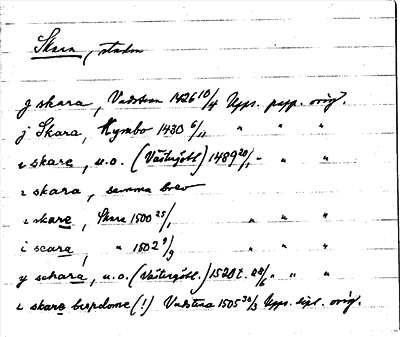 Skara, staden
j skara, Vadstena 1426 10/4 Upps. papp. orig.
j Skara, Kymbo 1430 6/11 " " "
i skare, u.o. (Västergötl.) 1489 20/1 " " "
i skara, samma brev
i skare, Skara 1500 25/1 " " "
i scara, " 1502 9/9 " " "
y schara, u.o. (Västergötl.) 1520 t. 28/6 " " "
i skare bispdome (!) Vadstena 1505 30/3 Upps. dipl. orig.